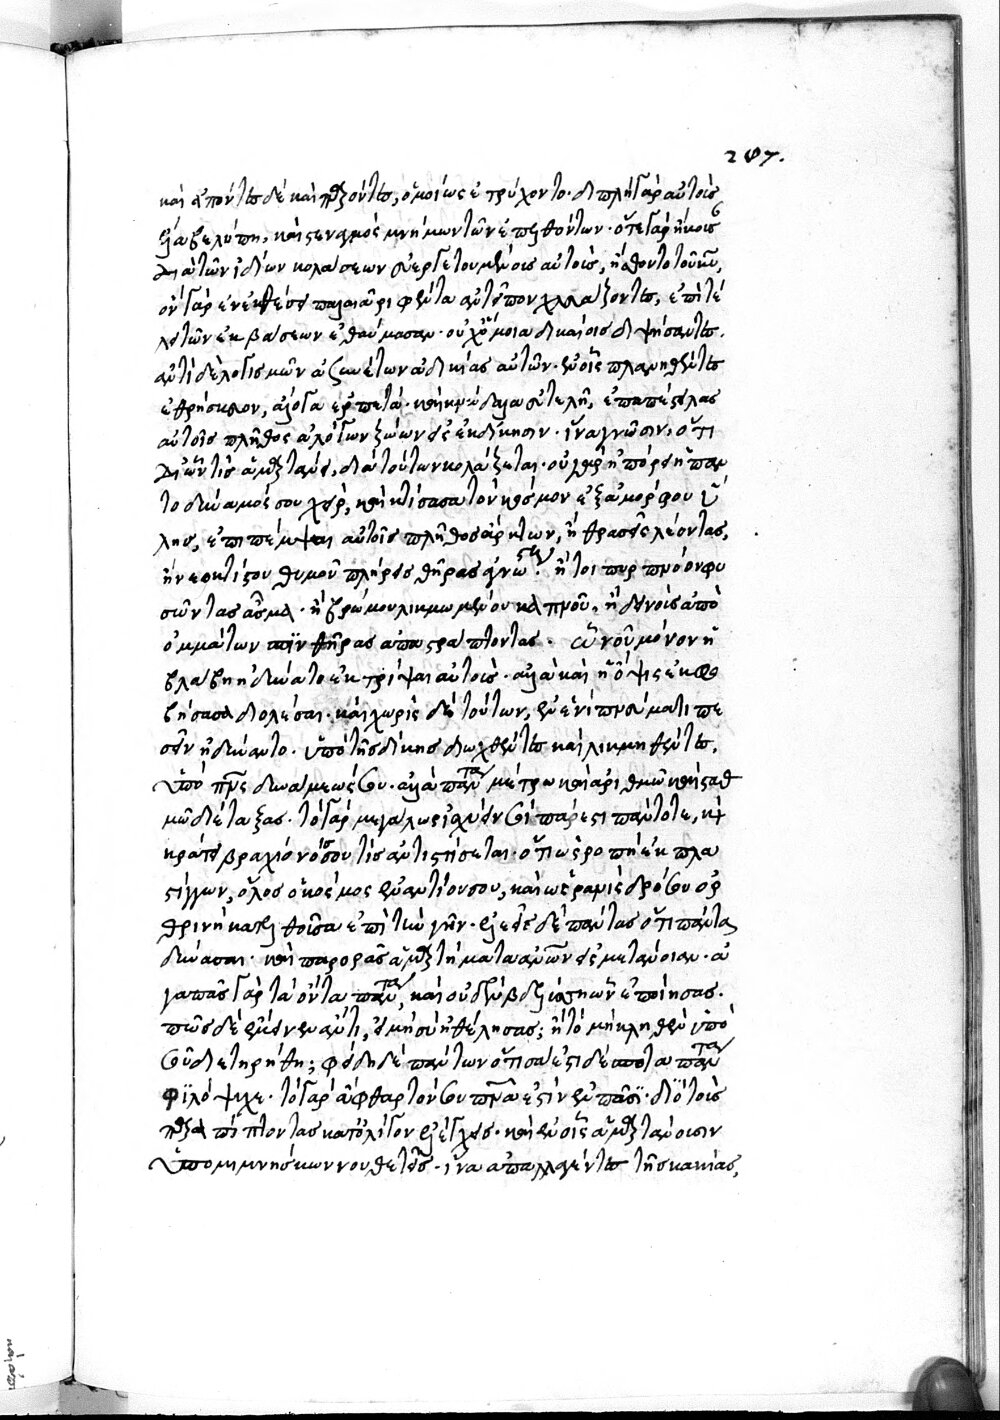 207.
καὶ ἀπόντες δὲ καὶ παρόντες, ὁμοίως ἐτρύχοντο· διπλῆ γὰρ αὐτοὺς
ἔλαβε λύπη, καὶ στεναγμὸς μνημῶν τῶν ἐπελθόντων· ὅτε γὰρ ἤκουσ
διὰ τῶν ἰδίων κολάσεων εὐεργετουμένους αὐτοὺς, ἤσθοντο τοῦ κυ,
ὃν γὰρ ἐν ἐκθέσει πάλαι ῥιφέντα ἀπεῖπον χλευάζοντες, ἐπὶ τέ
λει τῶν ἐκβάσεων ἐθαύμασαν· οὐχ ὅμοια δικαίοις διψήσαντες.
ἀντὶ δὲ λογισμῶν ἀσυνέτων ἀδικίας αὐτῶν· ἐν οἷς πλανηθέντες
ἐθρήσκευον, ἄλογα ἑρπετὰ καὶ κνώδαλα εὐτελῆ, ἐπαπέστειλας
αὐτοῖς πλῆθος ἀλόγων ζώων εἰς ἐκδίκησιν· ἵνα γνῶσιν, ὅτι
δι' ὧν τις ἁμαρτάνει, διὰ τούτων κολάζεται· οὐ γὰρ ἠπόρει ἡ παν
τοδύναμός σου χεὶρ, καὶ κτίσασα τὸν κόσμον ἐξ ἀμόρφου ὕ
λης, ἐπιπέμψαι αὐτοῖς πλῆθος ἄρκτων, ἢ θρασεῖς λέοντας,
ἢ νεοκτίστου θυμοῦ πλήρεις θῆρας ἀγνώστους· ἤτοι πυρπνόον φυ
σῶντας ἆσμα· ἢ βρόμου λικμωμένου καπνοῦ, ἢ δεινοὺς ἀπὸ
ὀμμάτων σπινθῆρας ἀπαστράπτοντας. ὧν οὐ μόνον ἡ
βλάβη ἠδύνατο ἐκτρίψαι αὐτοὺς· ἀλλὰ καὶ ἡ ὄψις ἐκφο
βήσασα διολέσαι. καὶ χωρὶς δὲ τούτων, ἐν ἑνὶ πνεύματι πε
σεῖν ἠδύναντο. ὑπὸ τῆς δίκης διωχθέντες καὶ λικμηθέντες,
ὑπὸ πνς δυνάμεώς σου· ἀλλὰ πάντα μέτρω καὶ ἀριθμῶ καὶ σταθ
μῶ διέταξας. τὸ γὰρ μεγάλως ἰσχύειν σοι πάρεστι πάντοτε, καὶ
κράτει βραχίονός σου τίς ἀντιστήσεται· ὅτι ὡς ῥοπὴ ἐκ πλα
στίγγων, ὅλος ὁ κόσμος ἐναντίον σου, καὶ ὡς ῥανὶς δρόσου ὀρ
θρινὴ κατελθοῦσα ἐπὶ τὴν γῆν. ἐλεεῖς δὲ πάντας ὅτι πάντα
δύνασαι. καὶ παρορᾶς ἁμαρτήματα ἀνῶν εἰς μετάνοιαν. ἀ
γαπᾶς γὰρ τὰ ὄντα πάντα, καὶ οὐδὲν βδελύσση ὧν ἐποίησας.
πῶς δὲ ἔμεινεν ἄν τι, εἰ μὴ σὺ ἠθέλησας; ἢ τὸ μὴ κληθὲν ὑπὸ
σοῦ διετηρήθη; φείδη δὲ πάντων ὅτι σά ἐστι δέσποτα πάντα
φιλόψυχε. τὸ γὰρ ἄφθαρτόν σου πνᾶ ἐστὶν ἐν πᾶσι· διὸ τοὺς
παραπίπτοντας κατ' ὀλίγον ἐλέγχεις. καὶ ἐν οἷς ἁμαρτάνουσιν
ὑπομιμνήσκων νουθετεῖς. ἵνα ἀπαλλαγέντες τῆς κακίας,